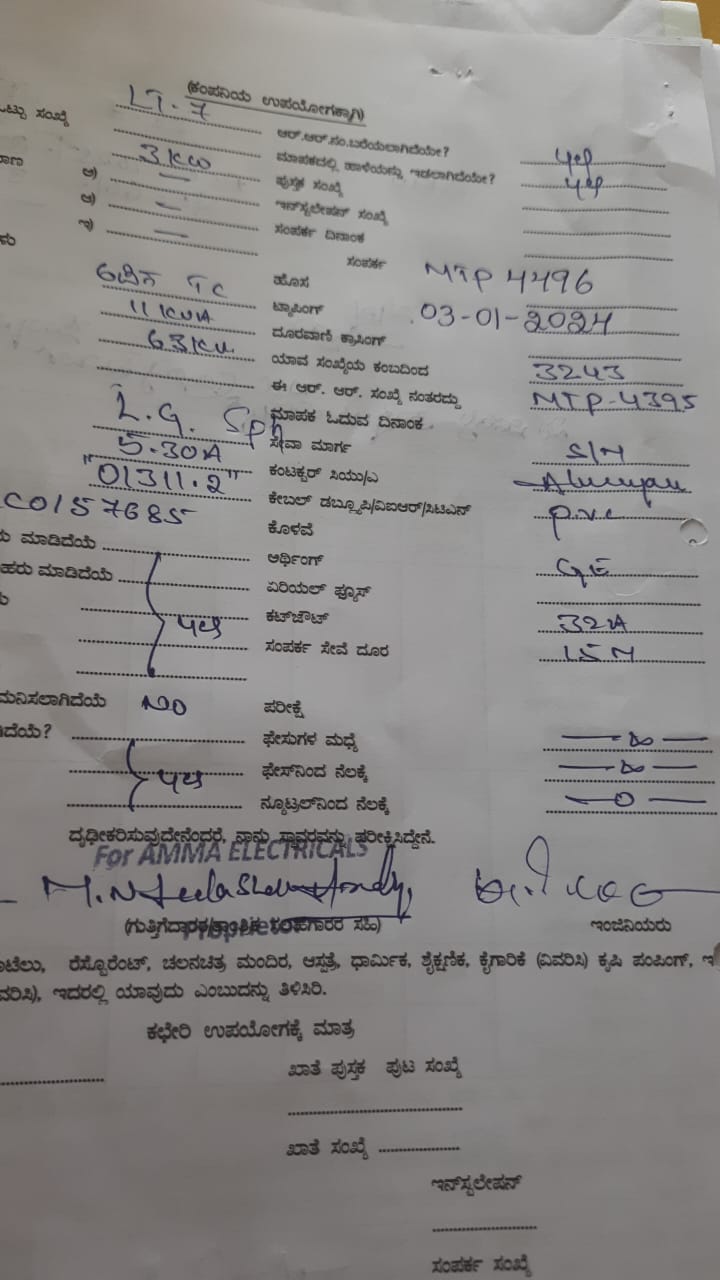 (ಕಂಪನಿಯ ಉಪಯೋಗಕ್ಕಾಗಿ)
ಒಟ್ಟು ಸಂಖ್ಯೆ LT-7 ಆರ್.ಆರ್.ಸಂ.ಬರೆಯಲಾಗಿದೆಯೇ? yes
3 KW ಮಾಪಕದಲ್ಲಿ ಹಾಳೆಯನ್ನು ಇಡಲಾಗಿದೆಯೇ? yes
ಅ) — ಪುಸ್ತಕ ಸಂಖ್ಯೆ
ಆ) — ಇನ್‌ಸ್ಟಲೇಷನ್ ಸಂಖ್ಯೆ
ಇ) — ಸಂಪರ್ಕ ದಿನಾಂಕ
ಸಂಪರ್ಕ
TC ಹೊಸ MTP 4496
11 KVA ಟ್ಯಾಪಿಂಗ್ 03-01-2024
63 KV ದೂರವಾಣಿ ಕ್ರಾಸಿಂಗ್
ಯಾವ ಸಂಖ್ಯೆಯ ಕಂಬದಿಂದ 3243
ಈ ಆರ್. ಆರ್. ಸಂಖ್ಯೆ ನಂತರದ್ದು MTP-4395
L.G. Sph ಮಾಪಕ ಓದುವ ದಿನಾಂಕ
5-30A ಸೇವಾ ಮಾರ್ಗ S/M
"01311.2" ಕಂಟಕ್ಟರ್ ಸಿಯು/ಎ
CO157685 ಕೇಬಲ್ ಡಬ್ಲ್ಯೂಪಿ/ವಿಐಆರ್/ಸಿಟಿಎಸ್ P.V.C
ಕೊಳವೆ
ಮಾಡಿದೆಯೆ ಆರ್ಥಿಂಗ್ GE
ಮಾಡಿದೆಯೆ ಏರಿಯಲ್ ಫ್ಯೂಸ್
yes ಕಟ್‌ಔಟ್ 32A
ಸಂಪರ್ಕ ಸೇವೆ ದೂರ 15M
ಮನಿಸಲಾಗಿದೆಯೆ NO ಪರೀಕ್ಷೆ
ದೆಯೆ? ಫೇಸುಗಳ ಮಧ್ಯೆ
yes ಫೇಸ್‌ನಿಂದ ನೆಲಕ್ಕೆ
ನ್ಯೂಟ್ರಲ್‌ನಿಂದ ನೆಲಕ್ಕೆ —0—
ದೃಢೀಕರಿಸುವುದೇನೆಂದರೆ, ನಾನು ಸ್ಥಾವರವನ್ನು ಪರೀಕ್ಷಿಸಿದ್ದೇನೆ.
For AMMA ELECTRICALS
Proprietor
ಇಂಜಿನಿಯರು
ರೆಸ್ಟೊರೆಂಟ್, ಚಲನಚಿತ್ರ ಮಂದಿರ, ಆಸ್ಪತ್ರೆ, ಧಾರ್ಮಿಕ, ಶೈಕ್ಷಣಿಕ, ಕೈಗಾರಿಕೆ (ವಿವರಿಸಿ) ಕೃಷಿ ಪಂಪಿಂಗ್, ಇ
ವರಿಸಿ), ಇದರಲ್ಲಿ ಯಾವುದು ಎಂಬುದನ್ನು ತಿಳಿಸಿರಿ.
ಕಛೇರಿ ಉಪಯೋಗಕ್ಕೆ ಮಾತ್ರ
ಖಾತೆ ಪುಸ್ತಕ ಪುಟ ಸಂಖ್ಯೆ
ಖಾತೆ ಸಂಖ್ಯೆ
ಇನ್‌ಸ್ಟಲೇಷನ್
ಸಂಪರ್ಕ ಸಂಖ್ಯೆ